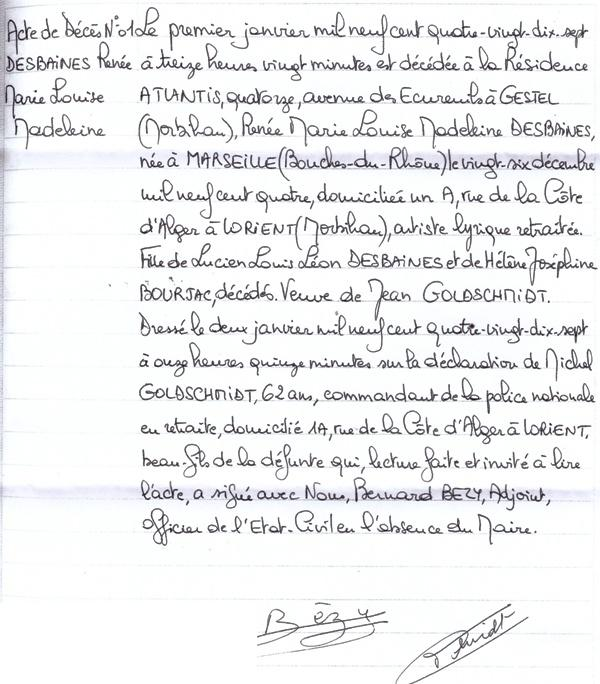 Acte de Décès N°01 Le premier janvier mil neuf cent quatre-vingt-dix-sept
DESBAINES Renée à treize heures vingt minutes est décédée à la Résidence
Marie Louise ATLANTIS, quatorze, avenue des Ecureuils à GESTEL
Madeleine (Morbihan), Renée Marie Louise Madeleine DESBAINES,
née à MARSEILLE (Bouches-du-Rhône) le vingt-six décembre
mil neuf cent quatre, domiciliée un A, rue de la Côte
d'Alger à LORIENT (Morbihan), artiste lyrique retraitée.
Fille de Lucien Louis Léon DESBAINES et de Hélène Joséphine
BOURJAC, décédés. Veuve de Jean GOLDSCHMIDT.
Dressé le deux janvier mil neuf cent quatre-vingt-dix-sept
à onze heures quinze minutes sur la déclaration de Michel
GOLDSCHMIDT, 62 ans, commandant de la police nationale
en retraite, domicilié 1A, rue de la Côte d'Alger à LORIENT,
beau-fils de la défunte qui, lecture faite et invité à lire
l'acte, a signé avec Nous, Bernard BEZY, Adjoint,
Officier de l'Etat-Civil en l'absence du Maire.
Bézy